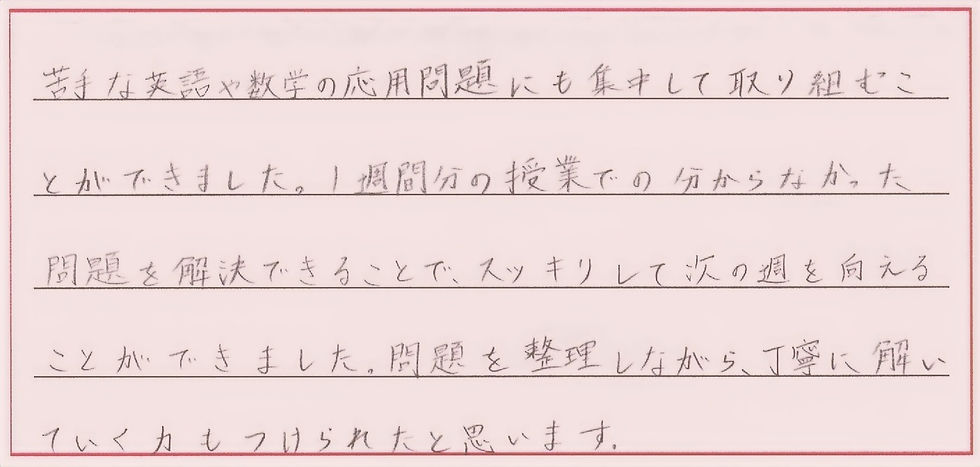 苦手な英語や数学の応用問題にも集中して取り組むこ
とができました。1週間分の授業での分からなかった
問題を解決できることで、スッキリして次の週を向える
ことができました。問題を整理しながら、丁寧に解い
ていく力もつけられたと思います。